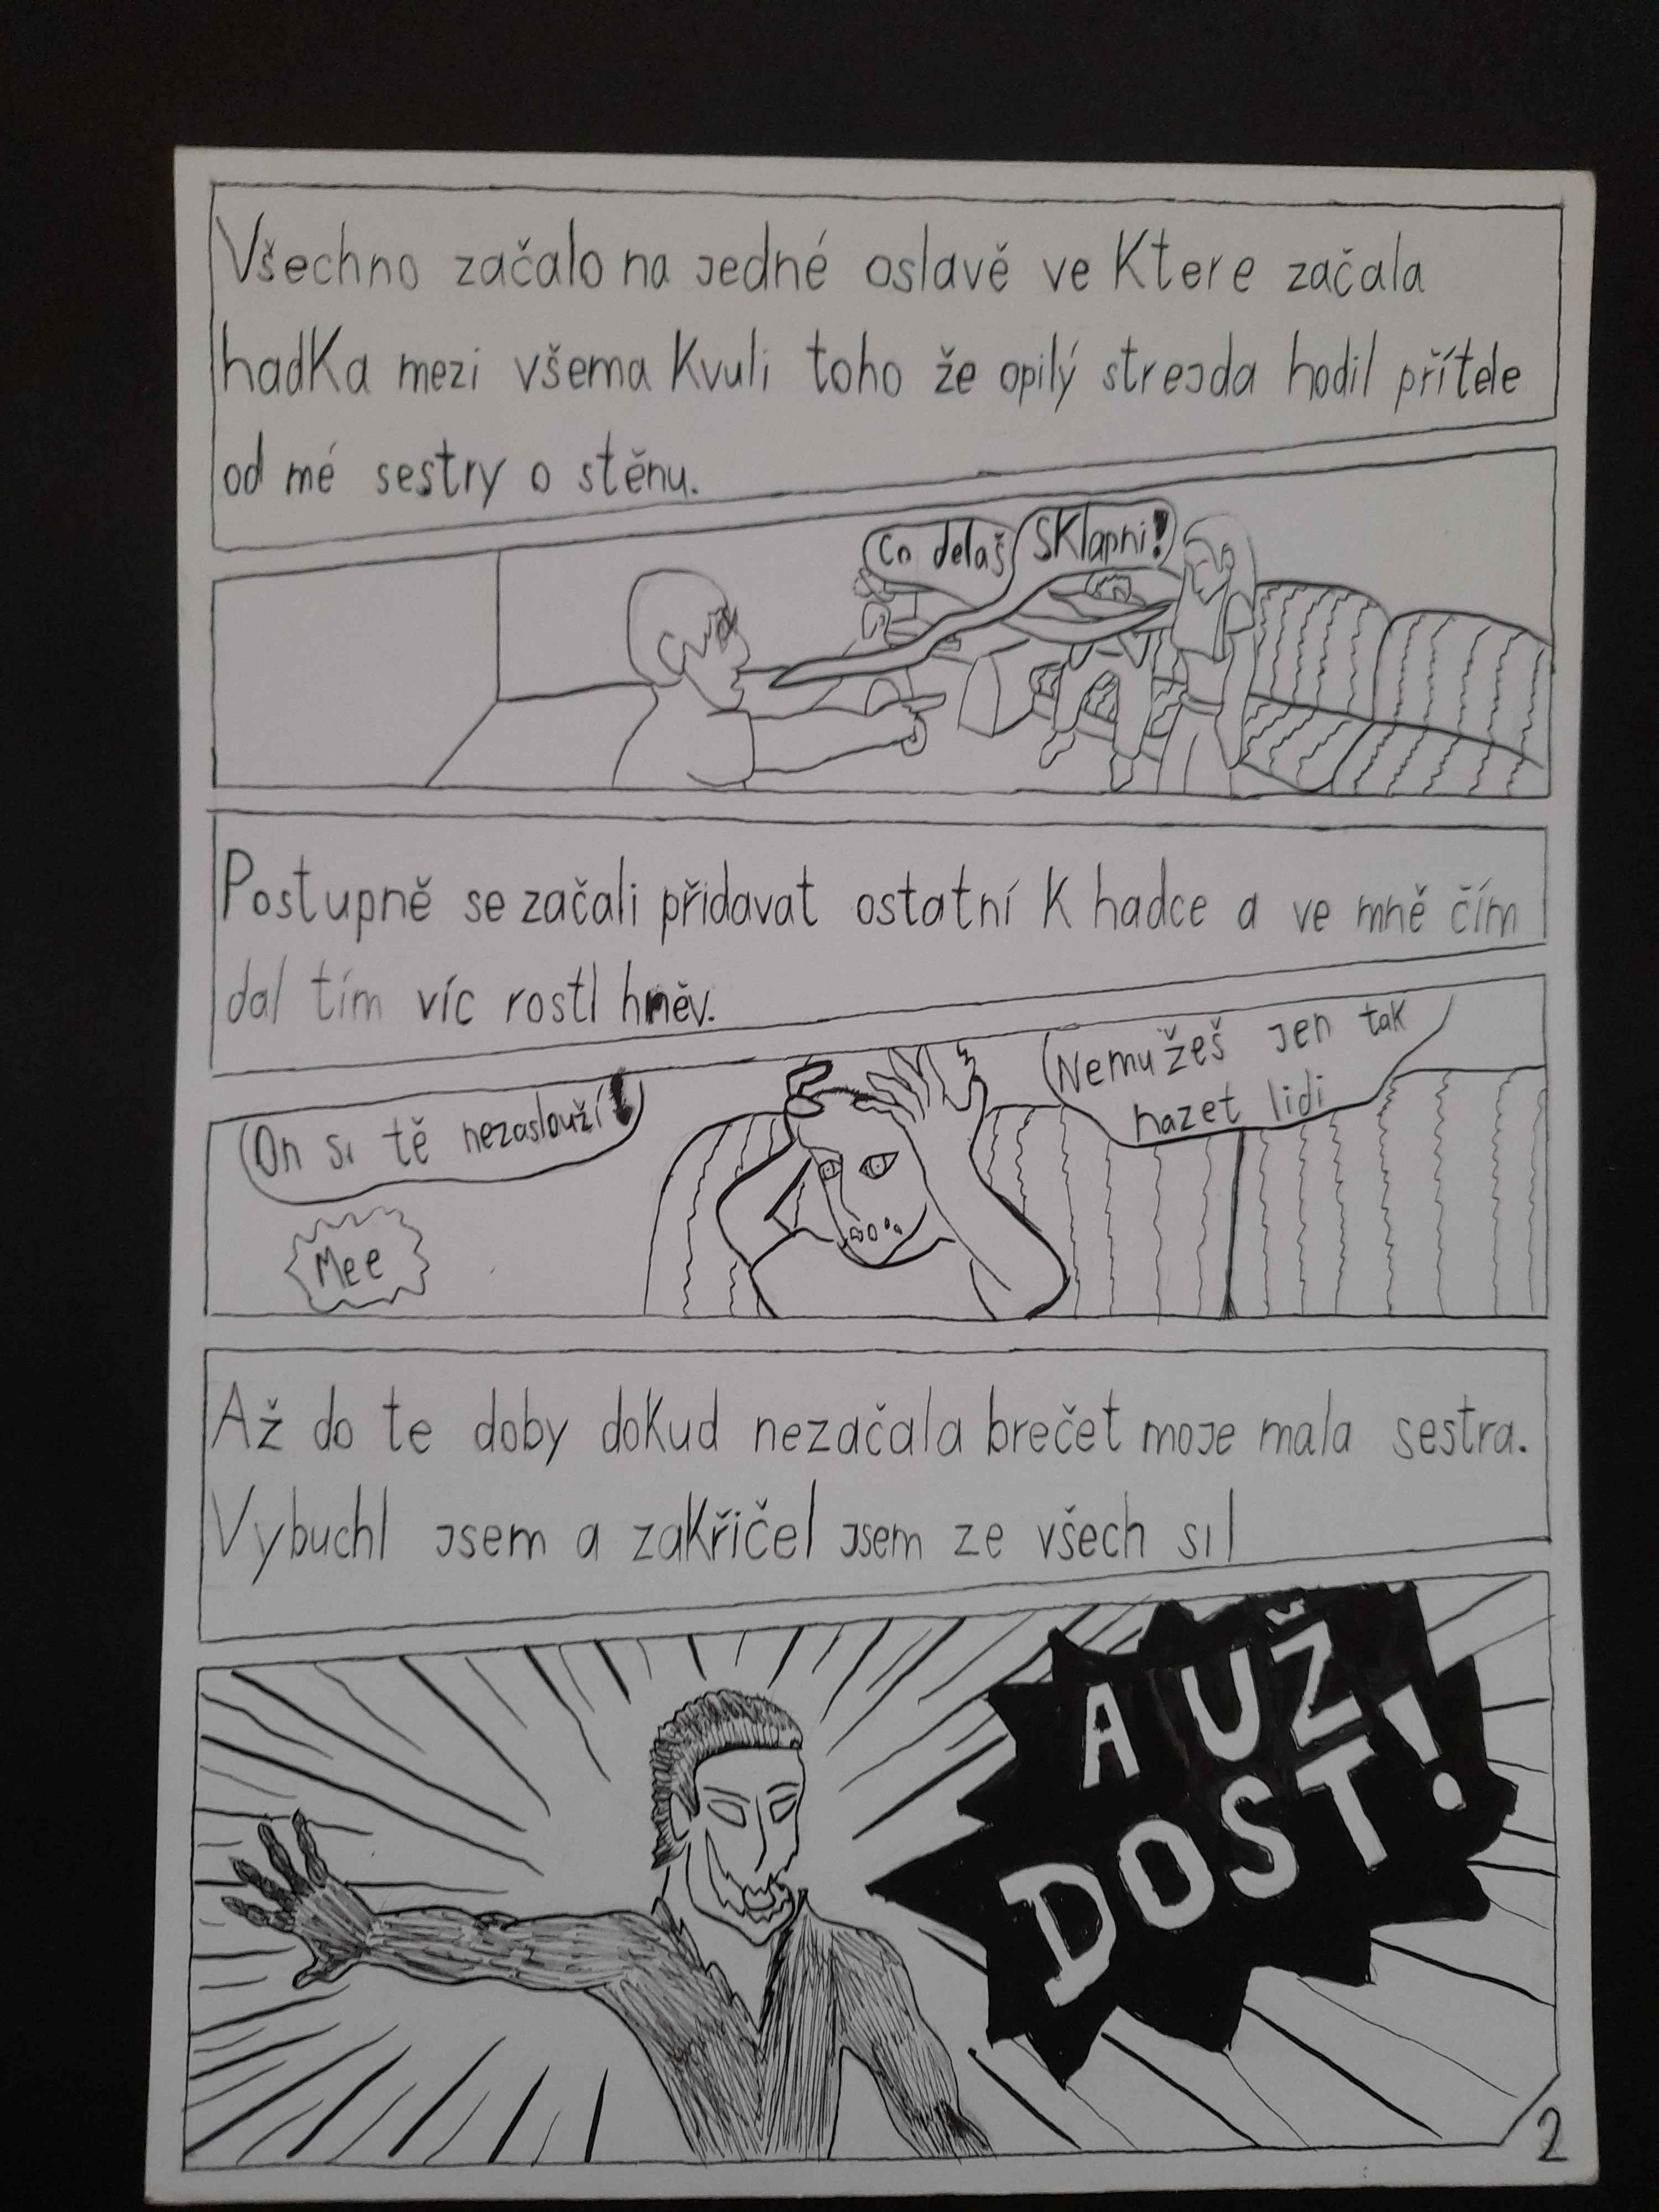 Všechno začalo na jedné oslavě ve Ktere začala
hadKa mezi všema Kvuli toho že opilý strejda hodil přítele
od mé sestry o stěnu.
Co delaš
SKlapni!
Postupně se začali přidavat ostatní K hadce a ve mně čím
dal tím víc rostl hněv.
On si tě nezaslouží!
Nemužeš jen tak
hazet lidi
Mee
Až do te doby doKud nezačala brečet moje mala sestra.
Vybuchl jsem a zaKřičel jsem ze všech sil
A UŽ
DOST!
2